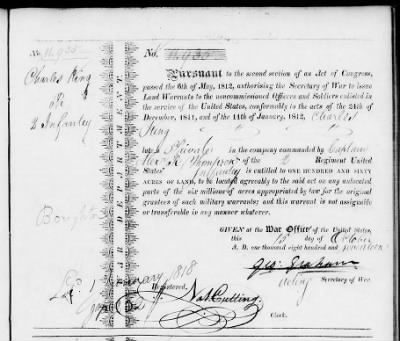 No. 11.935
No. 11.935
Charles King
Pt
2 Infantry
WAR DEPARTMENT.
Pursuant to the second section of an Act of Congress,
passed the 6th of May, 1812, authorising the Secretary of War to issue
Land Warrants to the noncommissioned Officers and Soldiers enlisted in
the service of the United States, conformably to the acts of the 24th of
December, 1811, and of the 11th of January, 1812, Charles
King
late a Private in the company commanded by Captain
Alex R. Thompson of the 2 Regiment United
States' Infantry is entitled to ONE HUNDRED AND SIXTY
ACRES OF LAND, to be located agreeably to the said act on any unlocated
parts of the six millions of acres appropriated by law for the original
grantees of such military warrants; and this warrant is not assignable
or transferable in any manner whatever.
GIVEN at the War Office of the United States,
this day of October
A. D. one thousand eight hundred and seventeen
Geo. Graham
Acting Secretary of War.
January 1818
Registered,
Nat Cutting
Clerk.